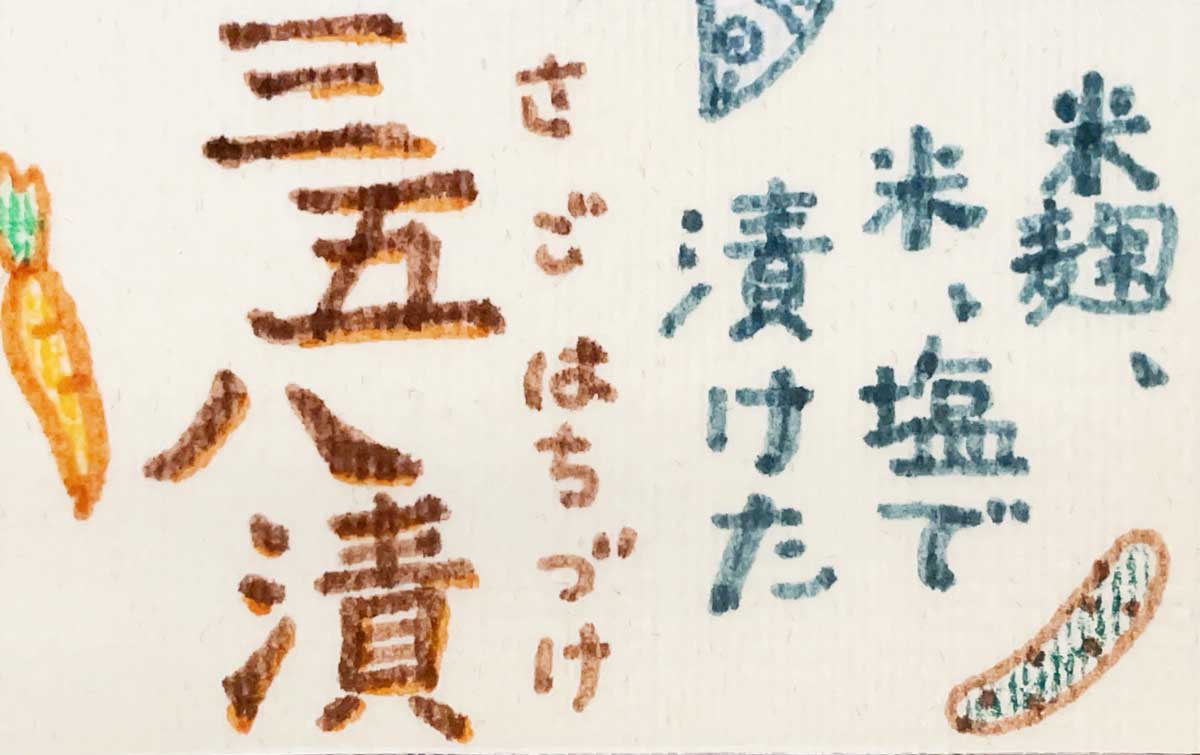 米麹、
米、塩で
漬けた
さごはちづけ
三五八漬